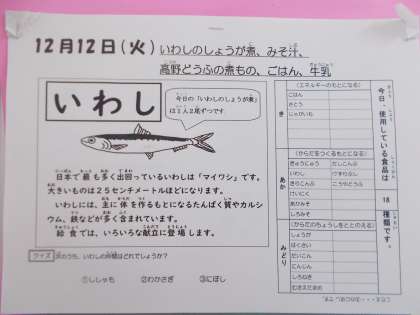 12月12日(火) いわしのしょうが煮、みそ汁、
高野どうふの煮もの、ごはん、牛乳
いわし
今日の「いわしのしょうが煮」
は1人2尾ずつです。
日本で最も多く出回っているいわしは「マイワシ」です。
大きいものは25センチメートルほどになります。
いわしには、主に体を作るもとになるたんぱく質やカルシ
ウム、鉄などが多く含まれています。
給食では、いろいろな献立に登場します。
クイズ 次のうち、いわしの仲間はどれでしょうか?
①ししゃも ②わかさぎ ③にぼし
今日、使用している食品は
18
種類です。
き
(エネルギーのもとになる)
ごはん
さとう
じゃがいも
あか
(からだをつくるもとになる)
ぎゅうにゅう だしこんぶ
いわし
こうやどうふ
けいにく
あぶらあげ
しろみそ
みどり
(からだのちょうしをととのえる)
しょうが
はくさい
だいこん
にんじん
しろねぎ